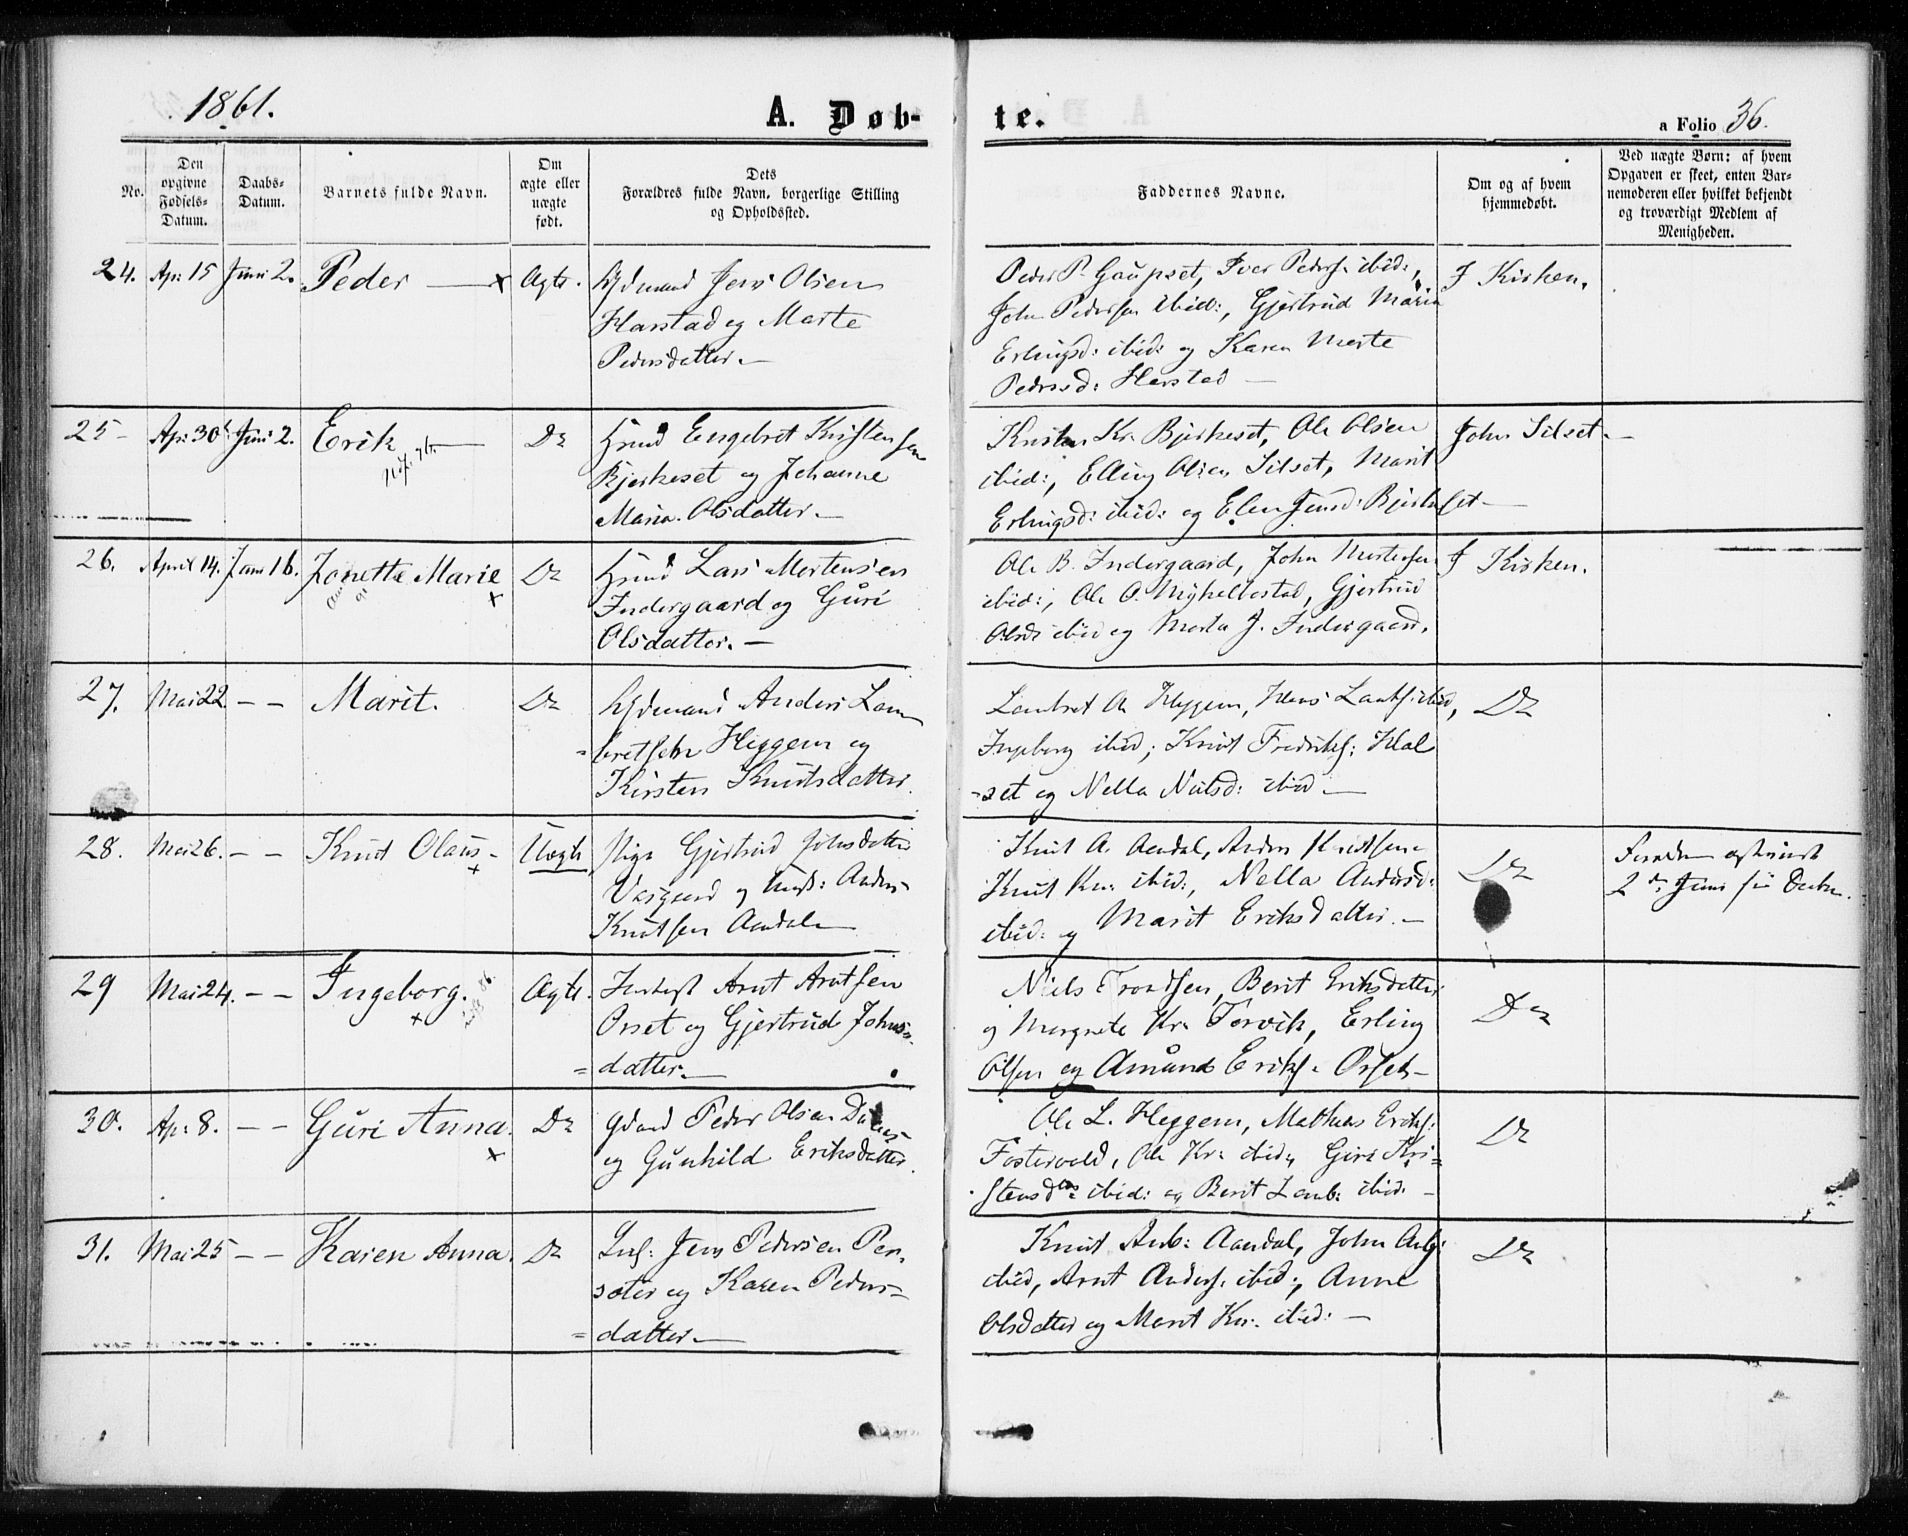 1861.
A. Døb-
te.
a Folio 36.
No.
Den
opgivne
Fødsels-
Datum.
Daabs-
Datum.
Barnets fulde Navn.
Om
ægte eller
uægte
født.
Dets
Forældres fulde Navn, borgerlige Stilling
og Opholdssted.
Faddernes Navne.
Om og af hvem
hjemmedøbt.
Ved uægte Børn: af hvem
Opgaven er skeet, enten Bar-
nemoderen eller hvilket bekjendt
og troværdigt Medlem af
Menigheden.
24. Ap: 15 Juni 2. Peder — x Ægte.
Jens Olsen
Harstad og Marte
Pedersdatter. —
Peder P. Gaupset, Iver Peders: ibid:,
John Pedersen ibid:, Gjertrud Maria
Erlingsd: ibid: og Karen Marte
Pedersd: Harstad —
I Kirken.
25- Ap: 30 Juni 2. Erik — Do
Engebret Kristensen
Bjerkeset og Johanne
Maria Olsdatter. —
Kristen Kr. Bjerkeset, Ole Olsen
ibid:, Elling Olsen Silset, Marit
Erlingsd: ibid: og Elen Jensd: Bjerkeset —
John Silset. —
26. April 14. Juni 16. Jonetta Marie x Do
Lars Mortensen
Indergaard og Guri
Olsdatter. —
Ole B. Indergaard, John Mortensen
ibid:, Ole O. Mykelbostad, Gjertrud
Olsd: ibid og Marta J. Indergaard.
I Kirken.
27. Mai 22. - - Marit. Do
Anders Lam
=bretsen Heggem og
Kirsten Knutsdatter.
Lambret A. Heggem, Hans Lambts: ibid,
Ingeborg ibid; Knut Fredriks: Hal
-set og Nella Nielsd: ibid —
Do
28. Mai 26. - - Knut Olaus - x Uægte
Pige Gjertrud Johnsdatter
og Ungk: Anders
Knutsen Aandal
Knut A. Aandal, Anders Knutsen
Knut Kn: ibid:, Nella Andersd:
ibid: og Marit Eriksdatter. —
Do
2 Juni
29 Mai 24. - - Ingeborg. x Ægte.
Arnt Arntsen
Orset og Gjertrud Johns-
=datter. —
Niels Trondsen, Berit Eriksdatter
og Margrete Kr. Torvik, Erling
Olsen og Amund Eriks: Orset —
Do
30. Ap: 8. - - Guri Anna. x Do
Peder Olsen
og Gunhild Eriksdatter.
Ole L. Heggem, Mathias Eriks:
Fostervold, Ole Kr: ibid, Guri Kri=
stensd: ibid: og Berit Lamb: ibid. —
Do
31. Mai 25 - - Karen Anna. Do
Jens Pedersen Per-
sæter og Karen Peders-
=datter. —
Knut And: Aandal, John
ibid, Arnt Anders: ibid:, Anne
Olsdatter og Marit Kn: ibid: —
Do